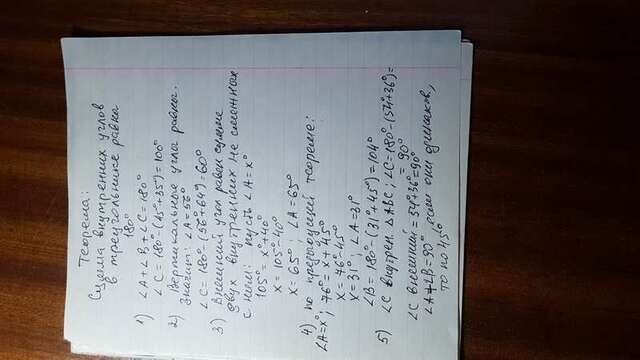 Теорема:
Сумма внутренних углов
в треугольнике равна
180°
1) ∠A+∠B+∠C=180°
∠C=180°-(45°+35°)=100°
2) Вертикальные углы равны.
Значит: ∠A=56°
∠C=180°-(56°+64°)=60°
3) Внешний угол равен сумме
двух внутренних не смежных
с ней: пусть ∠A=x°
105°=x°+40°
x=105°-40°
x=65°; ∠A=65°
4) по предыдущей теореме:
∠A=x°; 76°=x+45°
x=76°-45°
x=31°; ∠A=31°
∠B=180°-(31°+45°)=104°
5) ∠C внутрен. ΔABC; ∠C=180°-(54°+36°)=
=90°
∠C внешний=54°+36°=90°
∠A+∠B=90° если они одинаков,
то по 45°